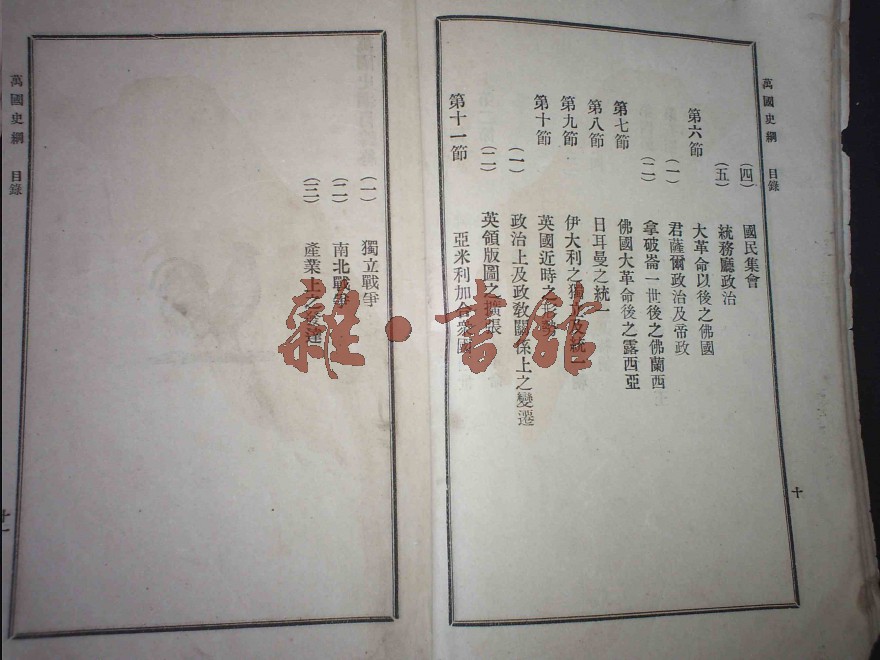 萬國史綱 目錄
(四) 國民集會
(五) 統務廳政治
第六節 大革命以後之佛國
(一) 君薩爾政治及帝政
(二) 拿破崙一世後之佛蘭西
第七節 佛國大革命後之露西亞
第八節 日耳曼之統一
第九節 伊大利之獨立及統一
第十節 英國近時之形勢
(一) 政治上及政教關係上之變遷
(二) 英領版圖之擴張
第十一節 亞米利加合衆國
十
(一) 獨立戰爭
(二) 南北戰爭
(三) 產業上之發達
萬國史綱 目錄
十一
雜·書館